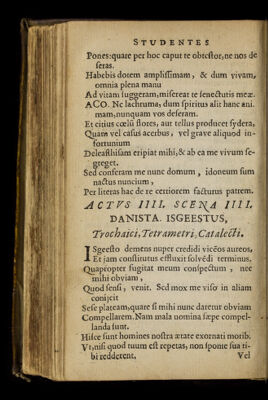 STUDENTES
Pones: quare per hoc caput te obtestor, ne nos de
seras.
Habebis dotem amplissimam, & dum vivam,
omnia plena manu
Ad vitam suggeram, misereat te senectutis meæ.
ACO. Ne lachruma, dum spiritus alit hanc ani.
mam, nunquam vos deseram.
Et citius cœlū flores, aut tellus producet sydera,
Quam vel casus acerbus, vel grave aliquod in-
fortunium
Deleasthisum eripiat mihi, & ab ea me vivum se-
greget.
Sed conferam me nunc domum, idoneum sum
nactus nuncium,
Per literas hac de re certiorem facturus patrem.
ACTVS IIII. SCENA IIII.
DANISTA. ISGEESTUS,
Trochaici, Tetrametri, Catalecti.
ISgeesto demens nuper credidi vicēos aureos,
Et jam constitutus effluxit solvēdi terminus.
Quapropter fugitat meum conspectum, nec
mihi obviam,
Quod sensi, venit. Sed mox me viso in aliam
conijcit
Sese plateam, quare si mihi nunc daretur obviam
Compellarem. Nam mala nomina sæpe compel-
landa sunt.
Hisce sunt homines nostra ætate exornati moribus.
Vt, nisi quod tuum est repetas, non sponte sua ti-
bi redderent,
Vel